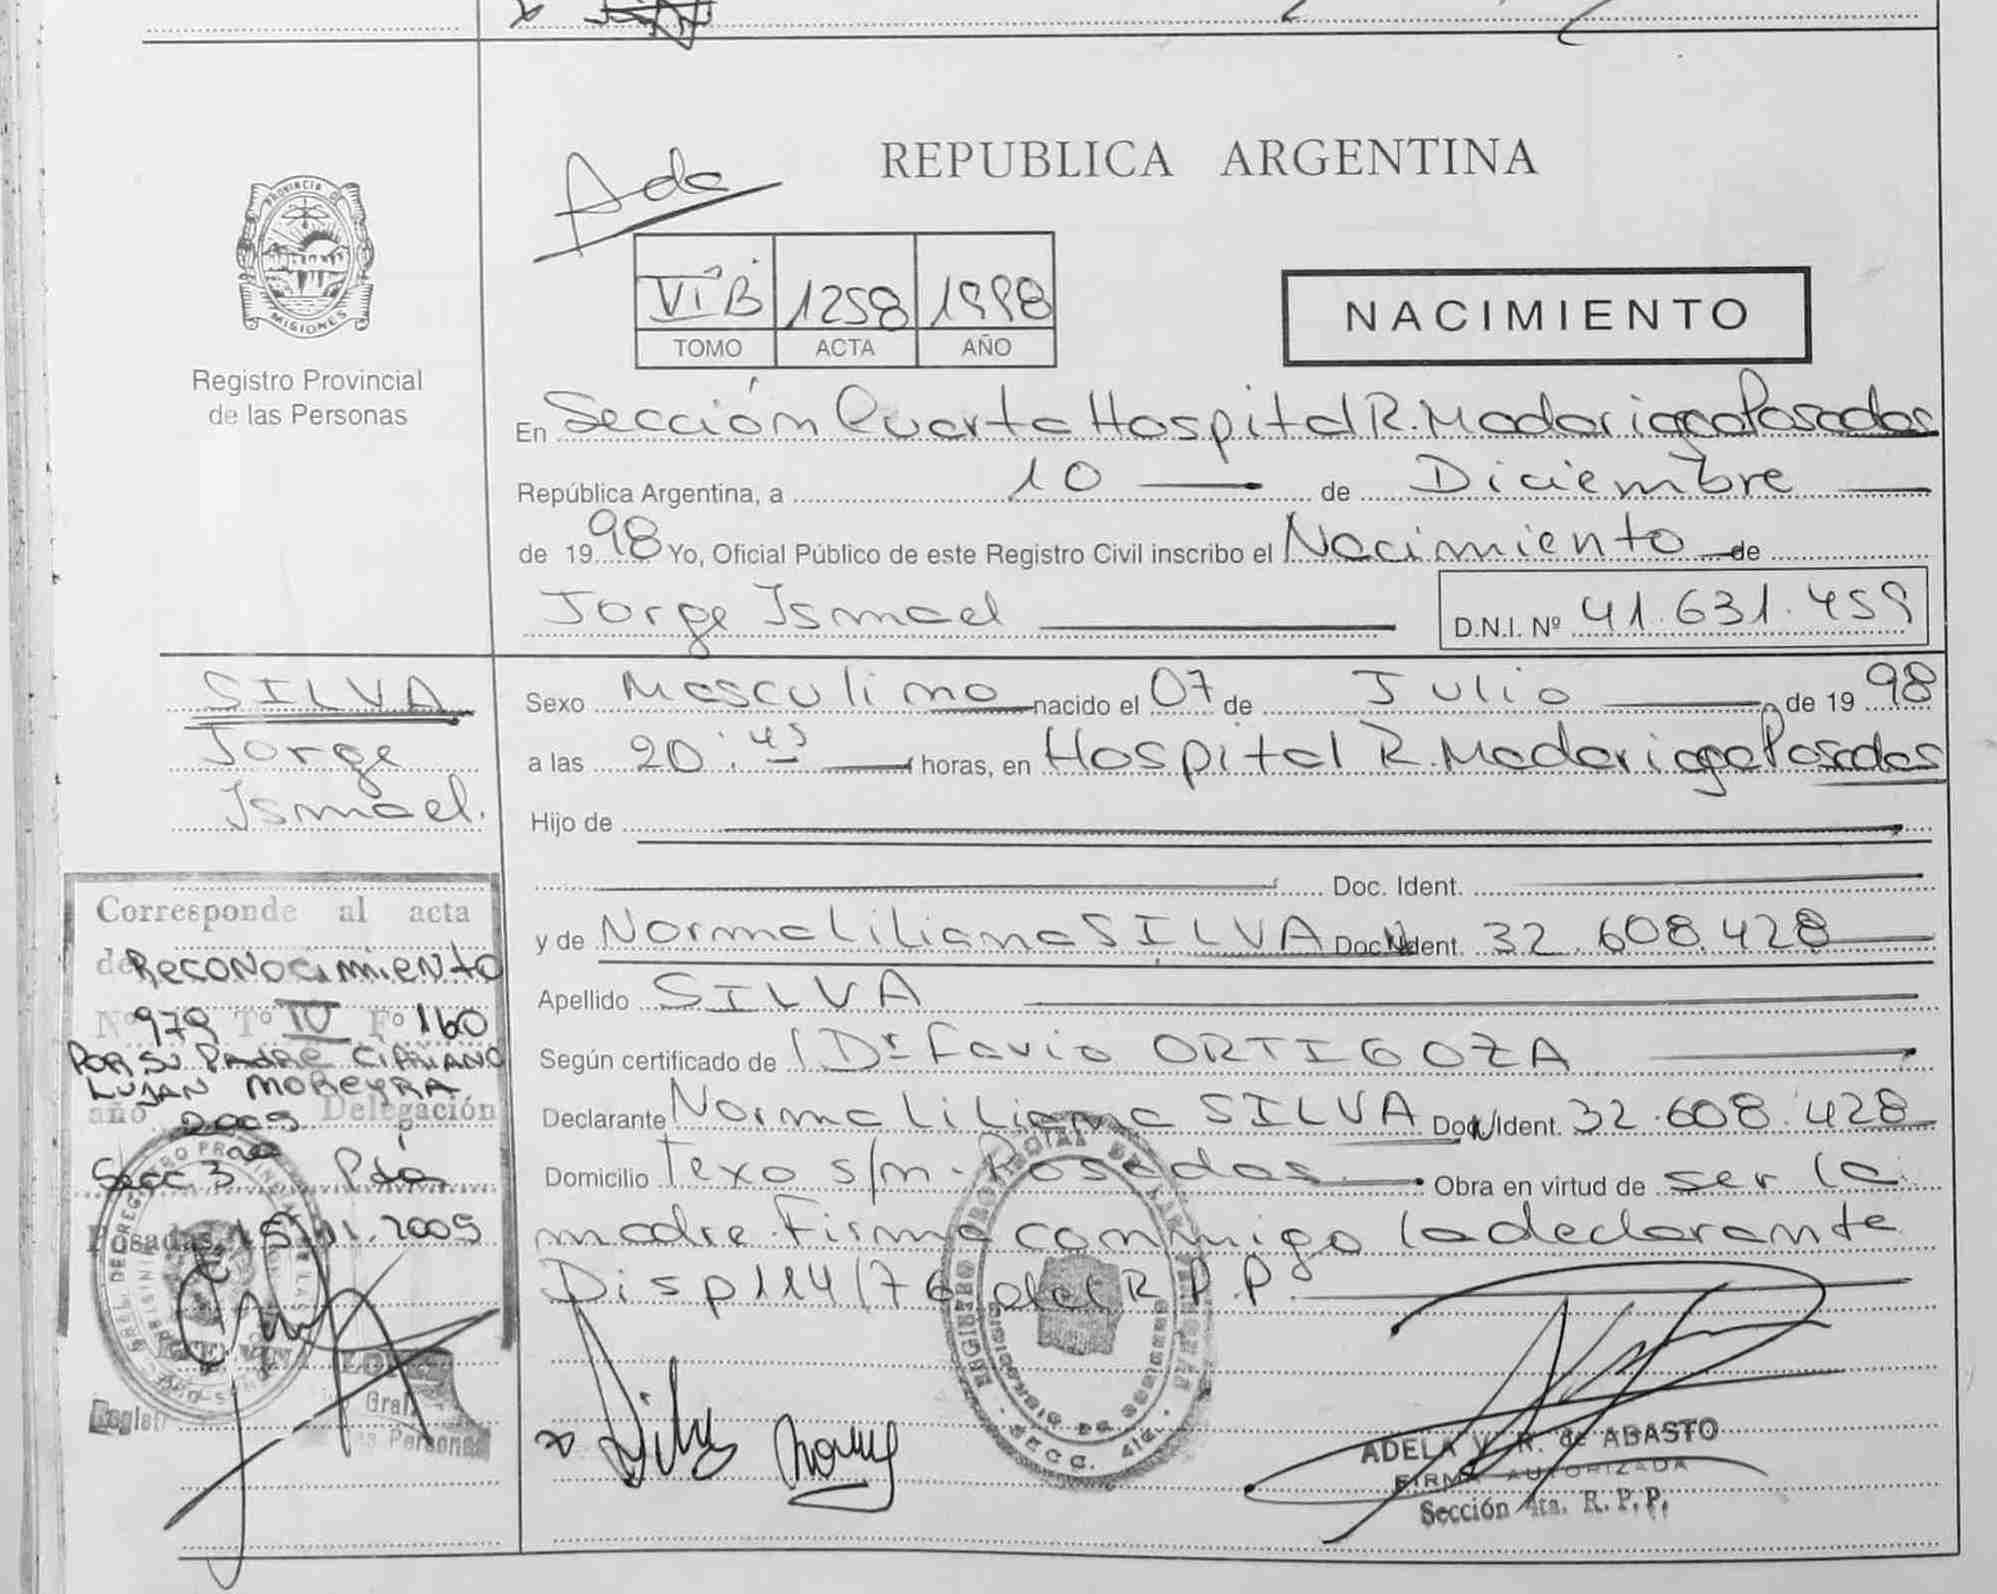 REPUBLICA ARGENTINA
Ada
PROVINCIA D
MISIONES
Registro Provincial
de las Personas
VI B 1258 1998
TOMO ACTA AÑO
NACIMIENTO
En Sección Cuarta Hospital R. Madariaga Posadas
República Argentina, a 10 de Diciembre
de 1998 Yo, Oficial Público de este Registro Civil inscribo el Nacimiento de
Jorge Ismael D.N.I. Nº 41.631.459
SILVA
Jorge
Ismael.
Sexo Masculino nacido el 07 de Julio de 1998
a las 20:45 horas, en Hospital R. Madariaga Posadas
Hijo de
Doc. Ident.
y de Norma Liliana SILVA Doc. Ident. 32.608.428
Apellido SILVA
Según certificado de Dr Favio ORTIGOZA
Declarante Norma Liliana SILVA Doc. Ident. 32.608.428
Domicilio Texo s/n. Posadas Obra en virtud de ser la
madre. Firma conmigo la declarante
Disp 114/76 del R.P.P.
Corresponde al acta
de Reconocimiento
Nº 979 Tº IV Fº 160
POR SU PADRE CIPRIANO
LUJAN MOREYRA
año 2005 Delegación
Secc 3 Pdas
Posadas, 15.11.2005
Gral.
las Personas
Silva Norma
ADELA V. R. de ABASTO
FIRMA AUTORIZADA
Sección 4ta. R.P.P.